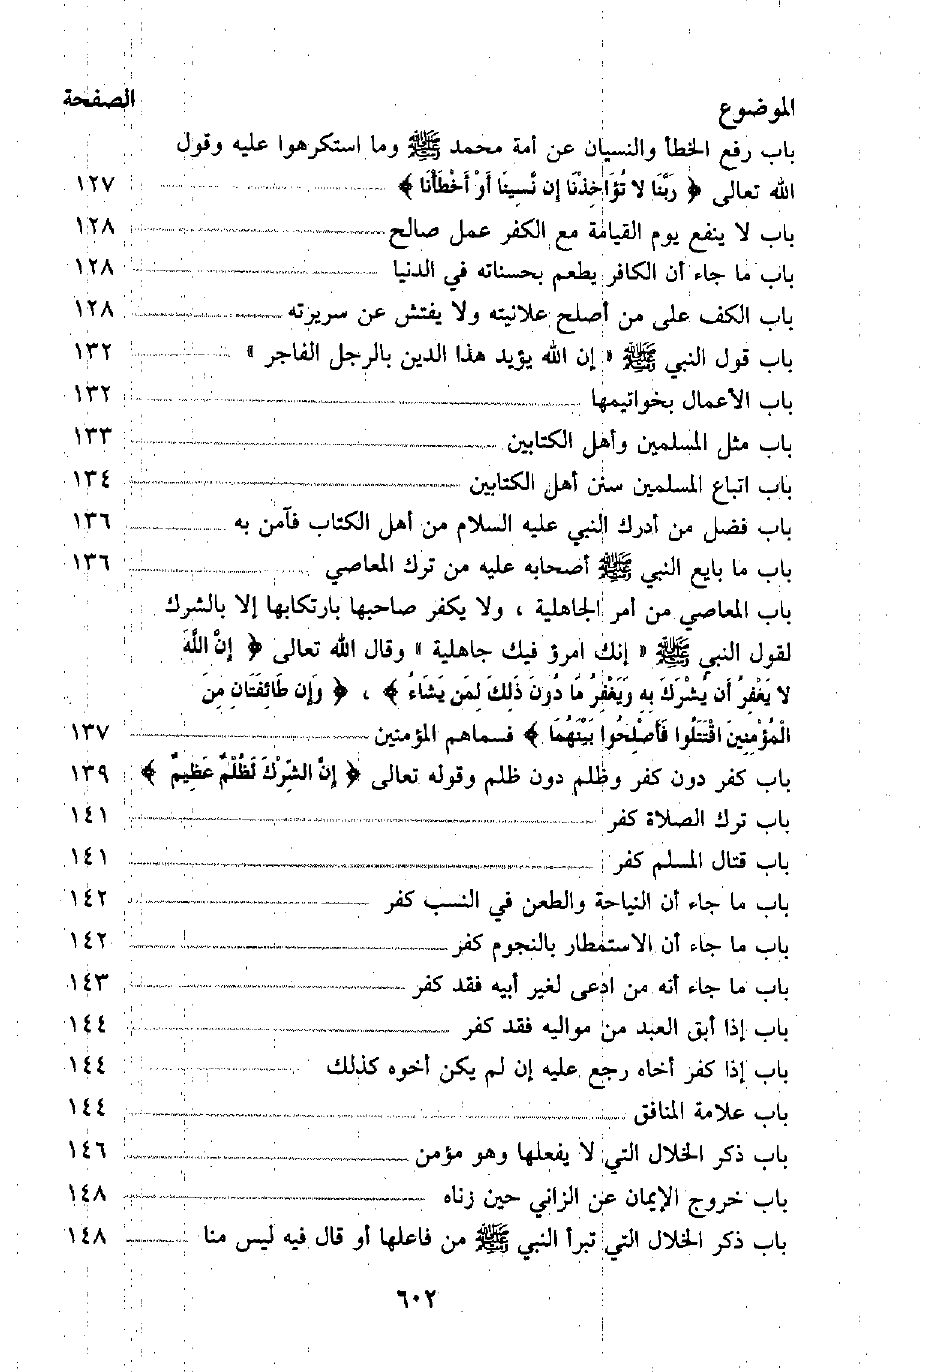 الموضوع الصفحة
باب رفع الخطأ والنسيان عن أمة محمد ﷺ وما استكرهوا عليه وقول
الله تعالى ﴿ رَبَّنَا لا تُؤَاخِذْنَا إِن نَّسِينَا أَوْ أَخْطَأْنَا ﴾ ١٢٧
باب لا ينفع يوم القيامة مع الكفر عمل صالح ١٢٨
باب ما جاء أن الكافر يطعم بحسناته في الدنيا ١٢٨
باب الكف على من أصلح علانيته ولا يفتش عن سريرته ١٢٨
باب قول النبي ﷺ « إن الله يؤيد هذا الدين بالرجل الفاجر » ١٣٢
باب الأعمال بخواتيمها ١٣٢
باب مثل المسلمين وأهل الكتابين ١٣٣
باب اتباع المسلمين سنن أهل الكتابين ١٣٤
باب فضل من أدرك النبي عليه السلام من أهل الكتاب فآمن به ١٣٦
باب ما بايع النبي ﷺ أصحابه عليه من ترك المعاصي ١٣٦
باب المعاصي من أمر الجاهلية ، ولا يكفر صاحبها بارتكابها إلا بالشرك
لقول النبي ﷺ « إنك امرؤ فيك جاهلية » وقال الله تعالى ﴿ إِنَّ اللَّهَ
لا يَغْفِرُ أَن يُشْرَكَ بِهِ وَيَغْفِرُ مَا دُونَ ذَلِكَ لِمَن يَشَاءُ ﴾ ، ﴿ وَإِن طَائِفَتَانِ مِنَ
الْمُؤْمِنِينَ اقْتَتَلُوا فَأَصْلِحُوا بَيْنَهُمَا ﴾ فسماهم المؤمنين ١٣٧
باب كفر دون كفر وظلم دون ظلم وقوله تعالى ﴿ إِنَّ الشِّرْكَ لَظُلْمٌ عَظِيمٌ ﴾ ١٣٩
باب ترك الصلاة كفر ١٤١
باب قتال المسلم كفر ١٤١
باب ما جاء أن النياحة والطعن في النسب كفر ١٤٢
باب ما جاء أن الاستمطار بالنجوم كفر ١٤٢
باب ما جاء أنه من ادعى لغير أبيه فقد كفر ١٤٣
باب إذا أبق العبد من مواليه فقد كفر ١٤٤
باب إذا كفر أخاه رجع عليه إن لم يكن أخوه كذلك ١٤٤
باب علامة المنافق ١٤٤
باب ذكر الخلال التي لا يفعلها وهو مؤمن ١٤٦
باب خروج الإيمان عن الزاني حين زناه ١٤٨
باب ذكر الخلال التي تبرأ النبي ﷺ من فاعلها أو قال فيه ليس منا ١٤٨
٦٠٢